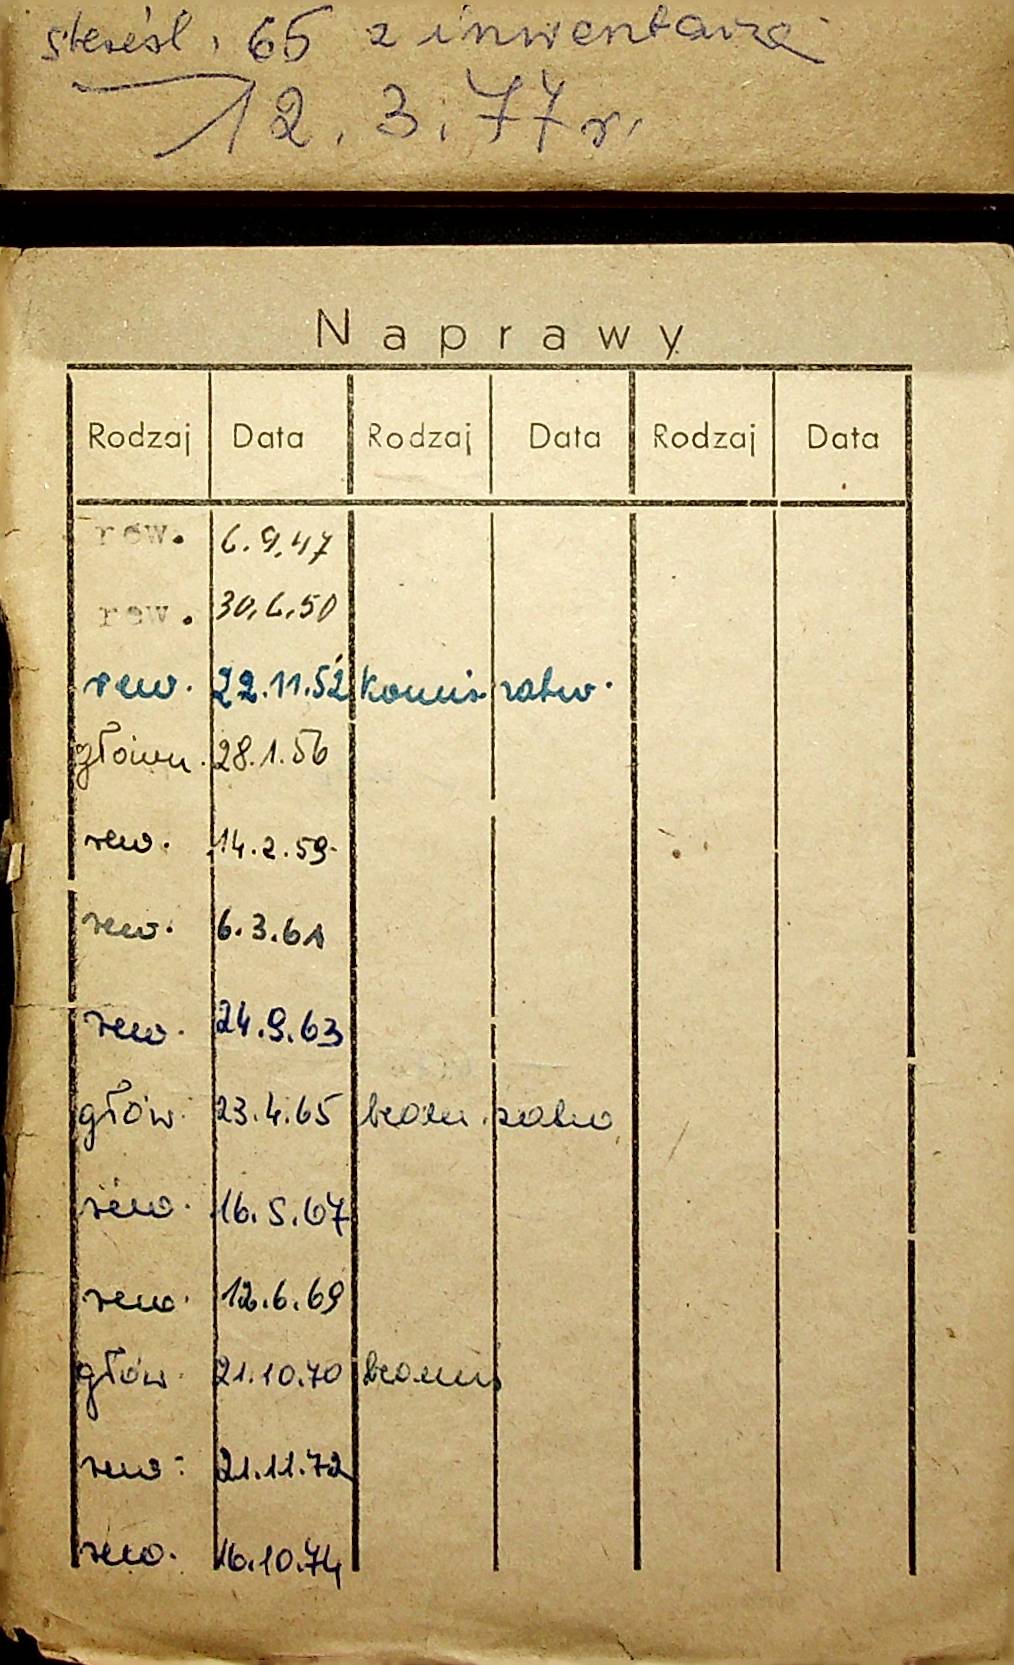 skreśl. 65 z inwentarza
12.3.77 r.
Naprawy
Rodzaj Data Rodzaj Data Rodzaj Data
rew. 6.9.47
rew. 30.6.50
rew. 22.11.52 komis. zatw.
główn. 28.1.56
rew. 14.2.59.
rew. 6.3.61
rew. 24.9.63
głów. 23.4.65 komis. zatw
rew. 16.5.67
rew. 12.6.69
głów. 21.10.70 komis
rew. 21.11.72
rew. 16.10.74